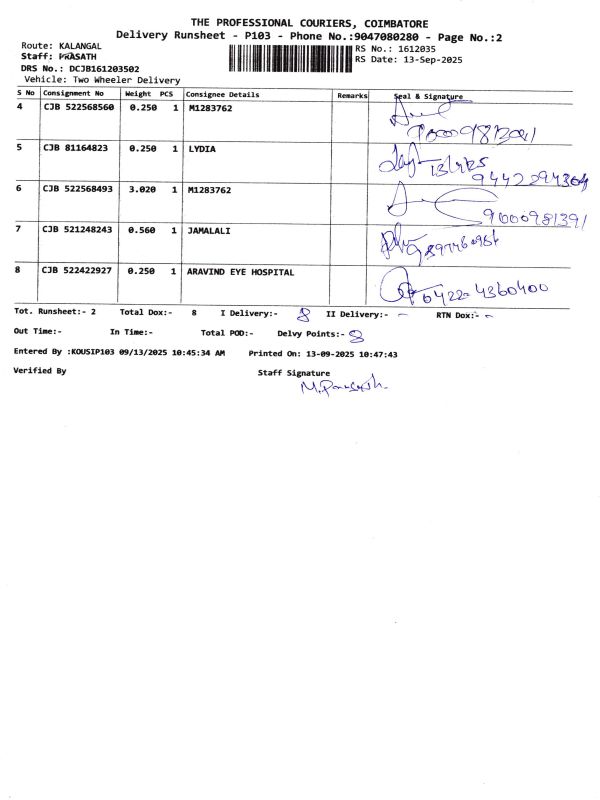 THE PROFESSIONAL COURIERS, COIMBATORE
Delivery Runsheet - P103 - Phone No.:9047080280 - Page No.:2
Route: KALANGAL
Staff: PRASATH
DRS No.: DCJB161203502
Vehicle: Two Wheeler Delivery
RS No.: 1612035
RS Date: 13-Sep-2025
S No Consignment No Weight PCS Consignee Details Remarks Seal & Signature
4 CJB 522568560 0.250 1 M1283762
5 CJB 81164823 0.250 1 LYDIA
6 CJB 522568493 3.020 1 M1283762
9600981391
7 CJB 521248243 0.560 1 JAMALALI
8 CJB 522422927 0.250 1 ARAVIND EYE HOSPITAL
0422-4360400
Tot. Runsheet:- 2 Total Dox:- 8 I Delivery:- 8 II Delivery:- - RTN Dox:- -
Out Time:- In Time:- Total POD:- Delvy Points:- 8
Entered By :KOUSIP103 09/13/2025 10:45:34 AM Printed On: 13-09-2025 10:47:43
Verified By Staff Signature